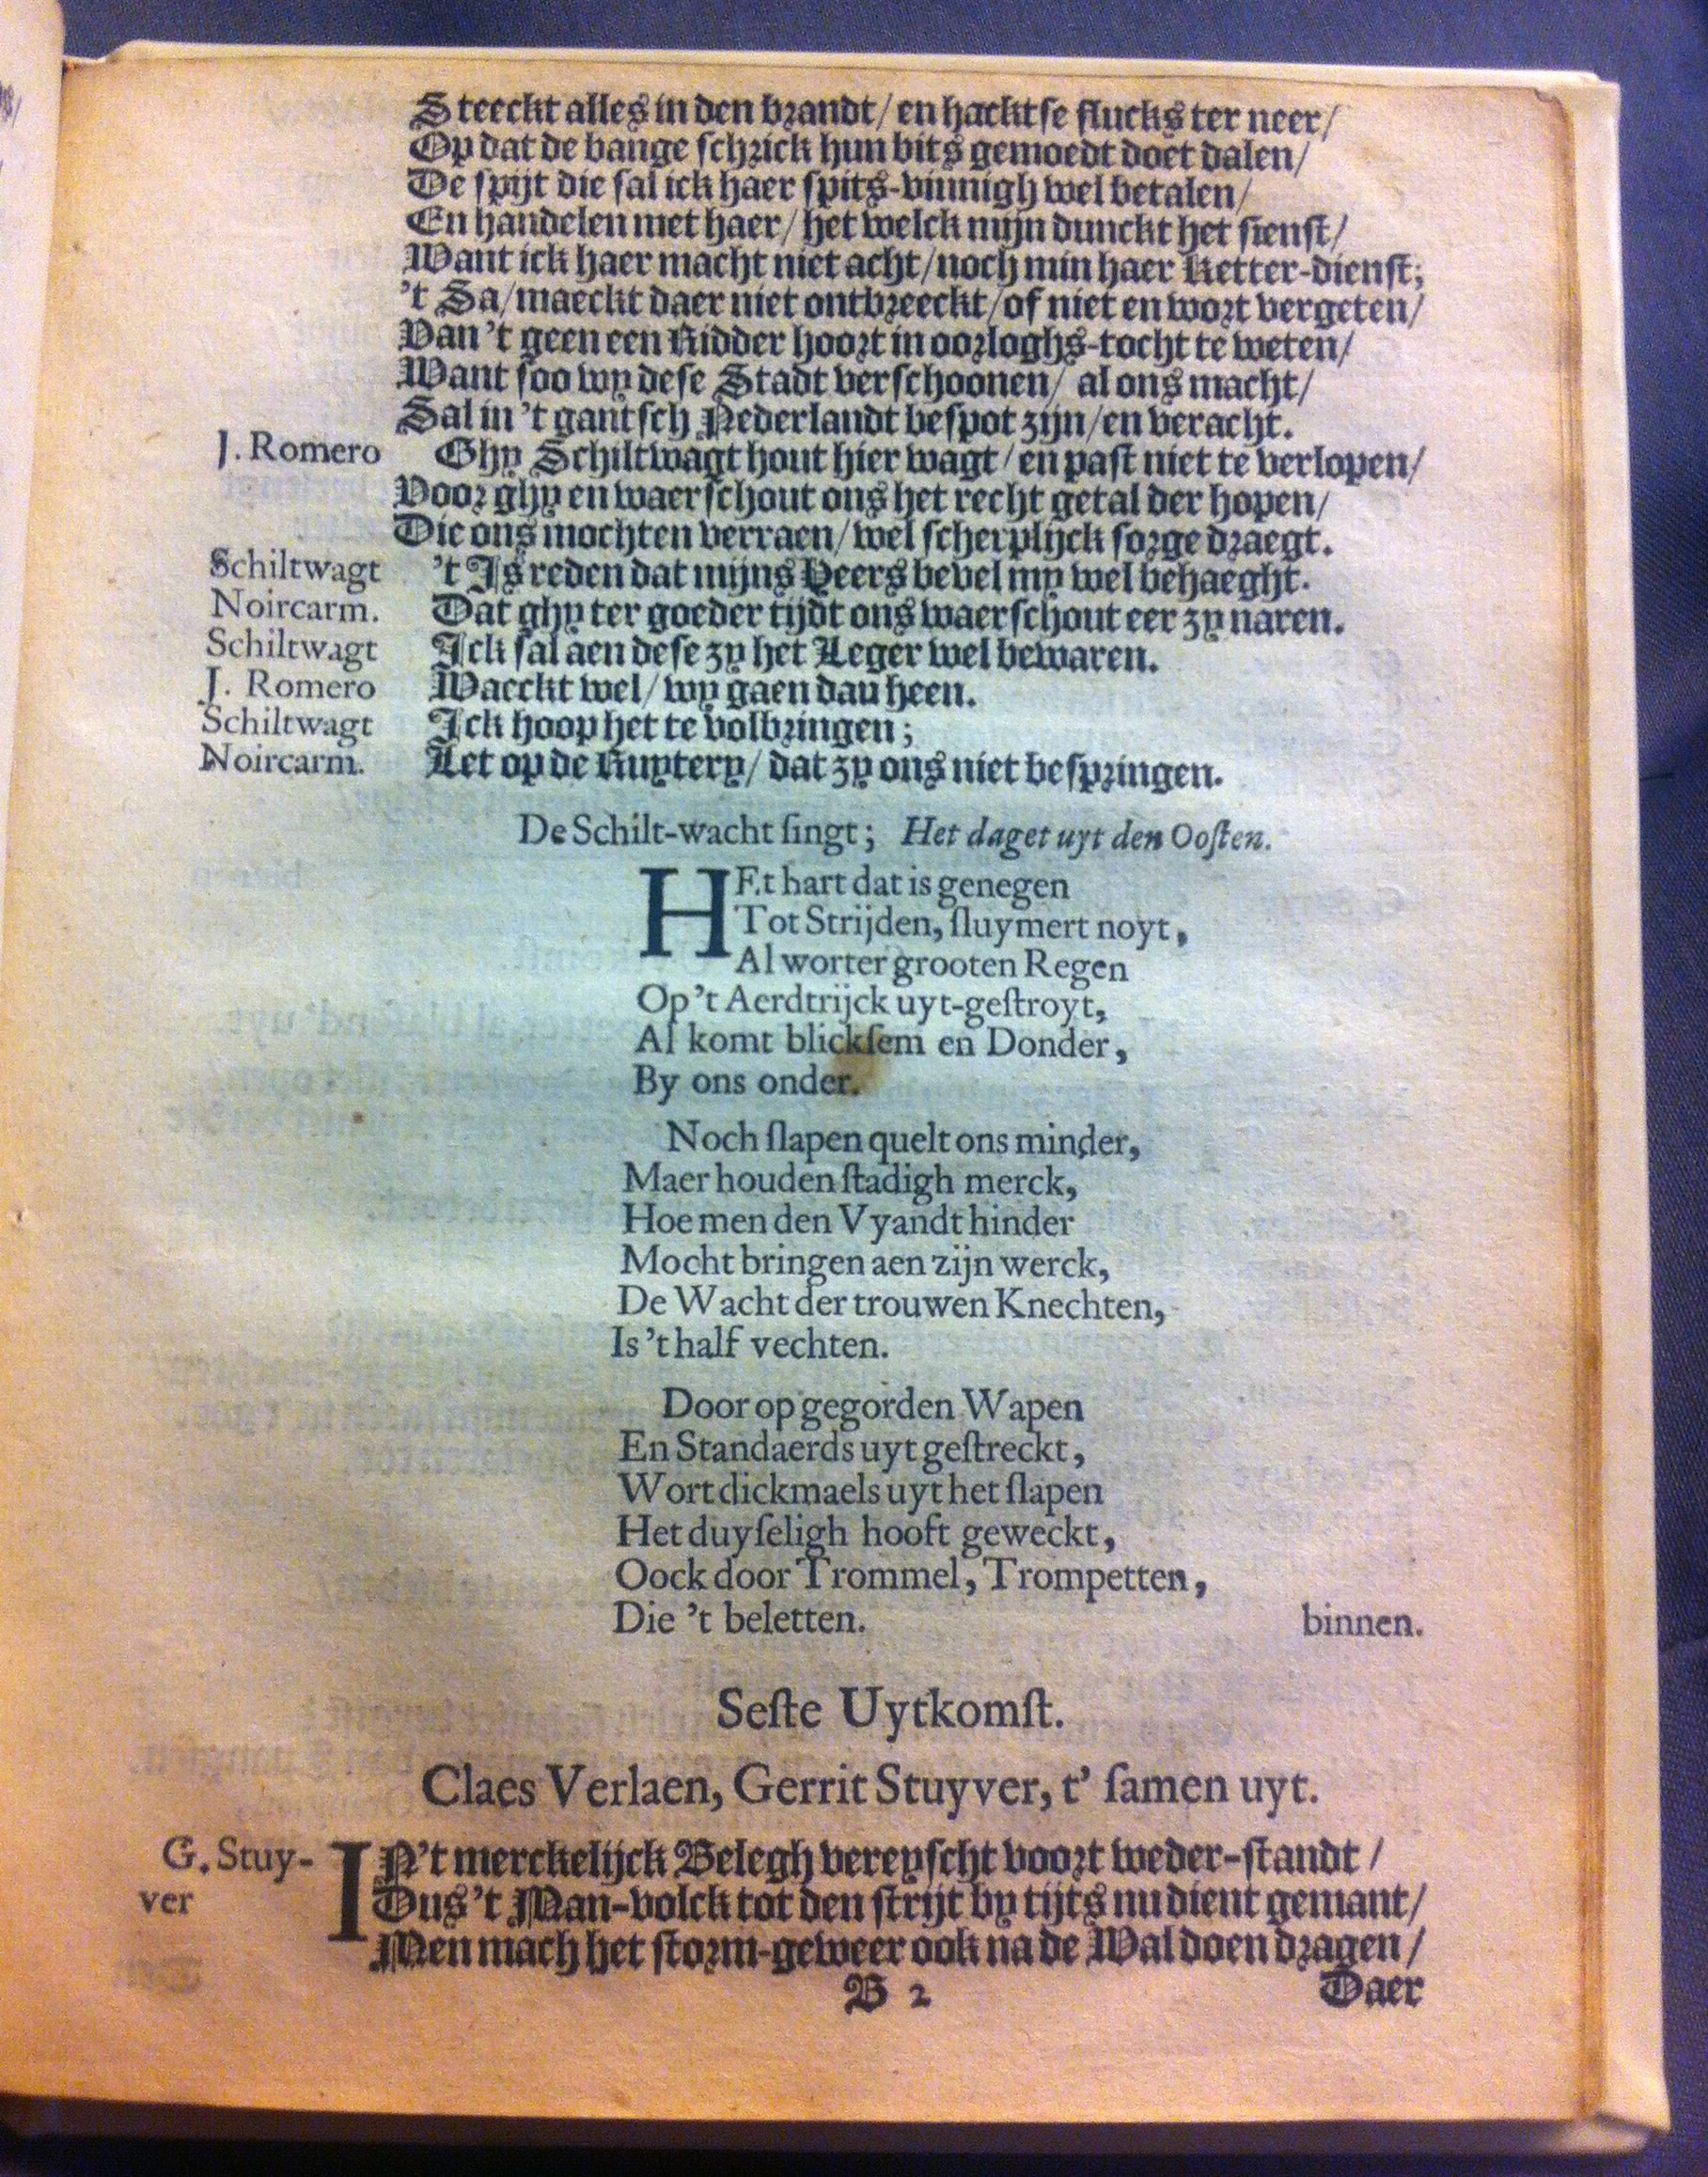 Steeckt alles in den brandt/ en hackt se flucks ter neer/
Op dat de bange schrick hun bits gemoedt doet dalen/
De spijt die sal ick haer spits-vinnigh wel betalen/
En handelen met haer/ het welck mijn dunckt het sienst/
Want ick haer macht niet acht/ noch min haer Ketter-dienst;
't Sa/ maeckt daer niet ontbreeckt/ of niet en wort vergeten/
Van 't geen een Ridder hoort in oorloghs-tocht te weten/
Want soo wy dese Stadt verschoonen/ al ons macht/
Sal in 't gantsch Nederlandt bespot zijn/ en veracht.
J. Romero Ghy Schiltwagt hout hier wagt/ en past niet te verlopen/
Voor ghy en waerschout ons het recht getal der hopen/
Die ons mochten verraen/ wel scherplijck sorge draegt.
Schiltwagt 't Is reden dat mijns Heers bevel my wel behaeght.
Noircarm. Dat ghy ter goeder tijdt ons waerschout eer zy naren.
Schiltwagt Ick sal aen dese zy het Leger wel bewaren.
J. Romero Maeckt wel/ wy gaen dau heen.
Schiltwagt Ick hoop het te volbringen;
Noircarm. Let op de Ruytery/ dat zy ons niet bespringen.
De Schilt-wacht singt; Het daget uyt den Oosten.
HEt hart dat is genegen
Tot Strijden, sluymert noyt,
Al worter grooten Regen
Op 't Aerdtrijck uyt-gestroyt,
Al komt blicksem en Donder,
By ons onder.
Noch slapen quelt ons minder,
Maer houden stadigh merck,
Hoe men den Vyandt hinder
Mocht bringen aen zijn werck,
De Wacht der trouwen Knechten,
Is 't half vechten.
Door op gegorden Wapen
En Standaerds uyt gestreckt,
Wort dickmaels uyt het slapen
Het duyseligh hooft geweckt,
Oock door Trommel, Trompetten,
Die 't beletten. binnen.
Seste Uytkomst.
Claes Verlaen, Gerrit Stuyver, t' samen uyt.
G. Stuy- IN 't merckelijck Belegh vereyscht voort weder-standt/
ver Dus 't Man-volck tot den strijt by tijts nu dient gemant/
Men mach het storm-geweer ook na de Wal doen dragen/
B 2 Daer